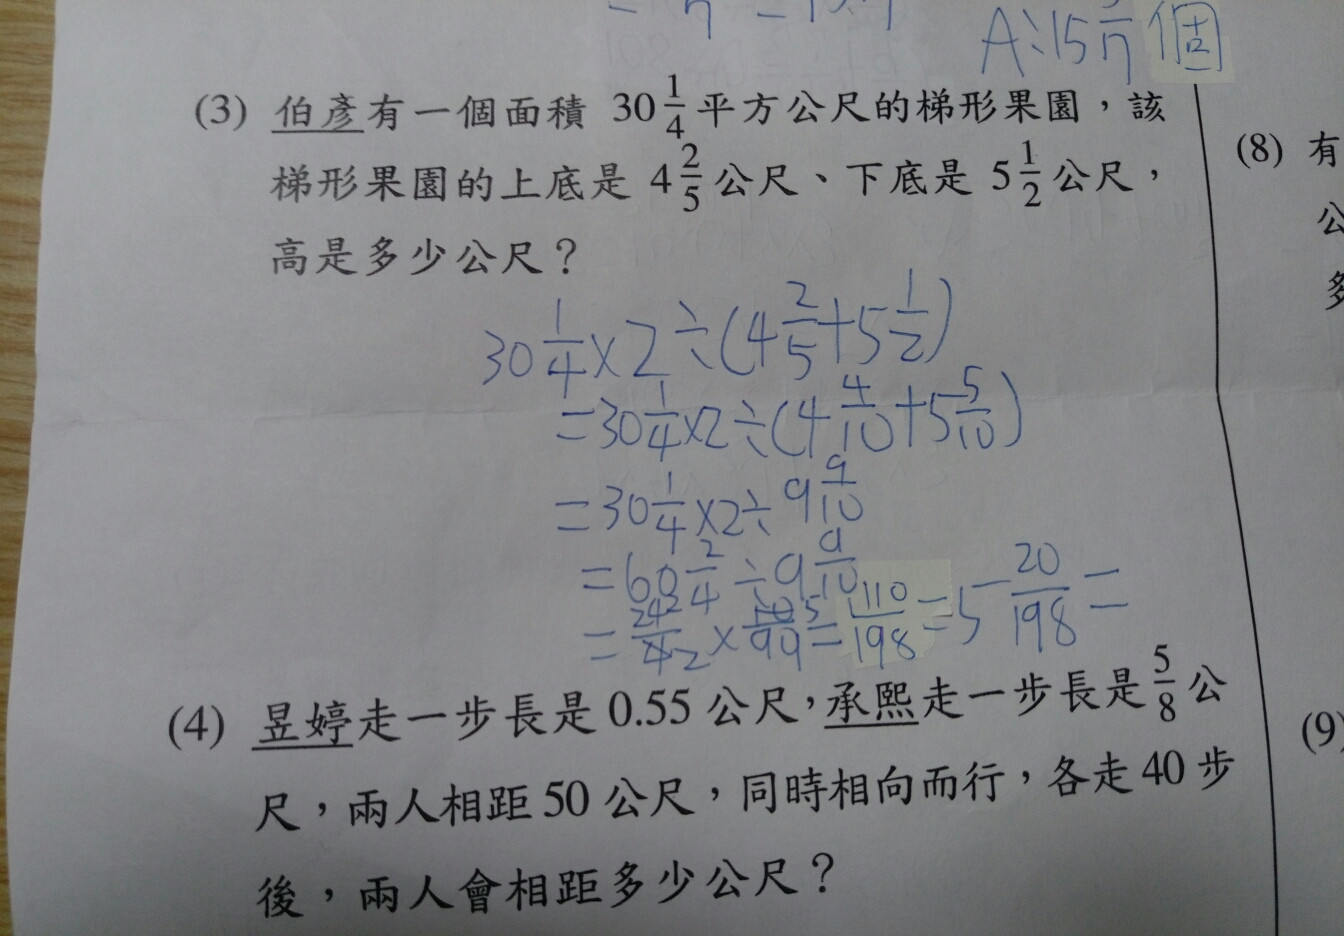 A:15 5/7 個
(3) 伯彥有一個面積 30 1/4 平方公尺的梯形果園，該
梯形果園的上底是 4 2/5 公尺、下底是 5 1/2 公尺，
高是多少公尺？
30 1/4 × 2 ÷ (4 2/5 + 5 1/2)
= 30 1/4 × 2 ÷ (4 4/10 + 5 5/10)
= 30 1/4 × 2 ÷ 9 9/10
= 60 2/4 ÷ 9 9/10
= 242/4 2 × 10/99 5 = 1110/198 = 5 20/198 =
(4) 昱婷走一步長是 0.55 公尺，承熙走一步長是 5/8 公
尺，兩人相距 50 公尺，同時相向而行，各走 40 步
後，兩人會相距多少公尺？
(8) 有
公
多
(9)